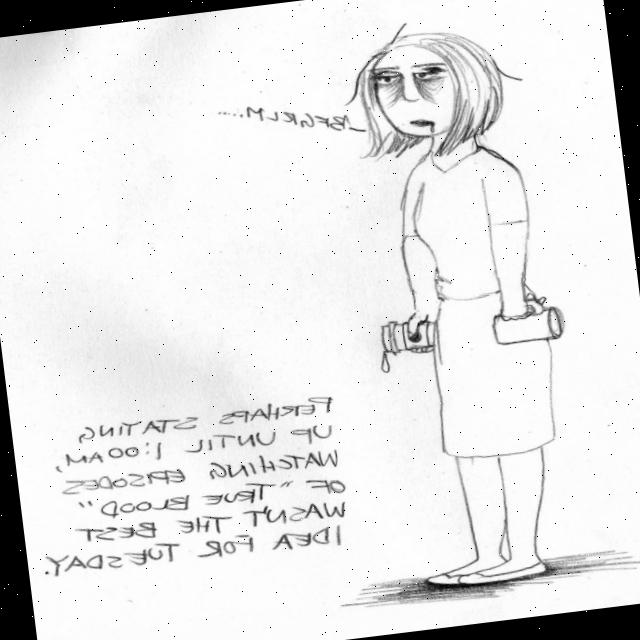 BFGRLM....
PERHAPS STATING
UP UNTIL 1:00AM,
WATCHING EPISODES
OF "TRUE BLOOD"
WASN'T THE BEST
IDEA FOR TUESDAY.